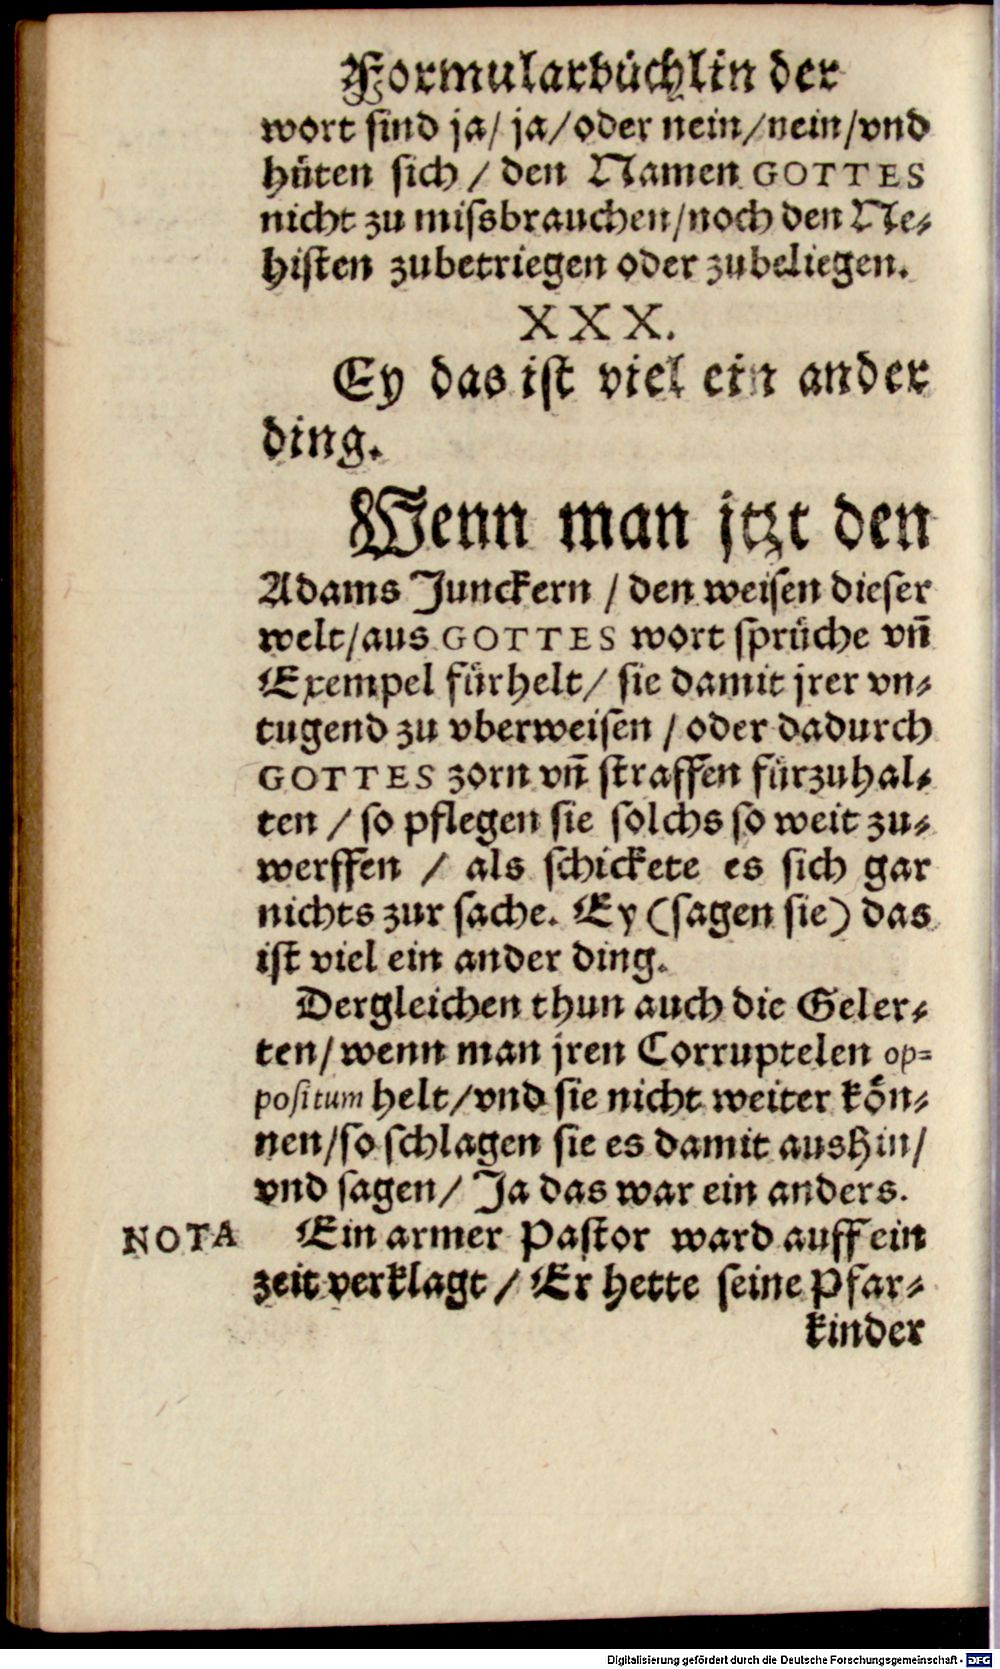 Formularbüchlin der
wort sind ja/ ja/ oder nein/ nein/ vnd
hüten sich / den Namen GOTTES
nicht zu missbrauchen/ noch den Ne-
histen zubetriegen oder zubeliegen.
XXX.
Ey das ist viel ein ander
ding.
Wenn man jtzt den
Adams Junckern / den weisen dieser
welt/ aus GOTTES wort sprüche vn̄
Exempel fürhelt/ sie damit jrer vn-
tugend zu vberweisen / oder dadurch
GOTTES zorn vn̄ straffen fürzuhal-
ten / so pflegen sie solchs so weit zu-
werffen / als schickete es sich gar
nichts zur sache. Ey (sagen sie) das
ist viel ein ander ding.
Dergleichen thun auch die Geler-
ten/ wenn man jren Corruptelen op-
positum helt/ vnd sie nicht weiter kön-
nen/ so schlagen sie es damit aushin/
vnd sagen/ Ja das war ein anders.
NOTA Ein armer Pastor ward auff ein
zeit verklagt / Er hette seine Pfar-
kinder
Digitalisierung gefördert durch die Deutsche Forschungsgemeinschaft - DFG